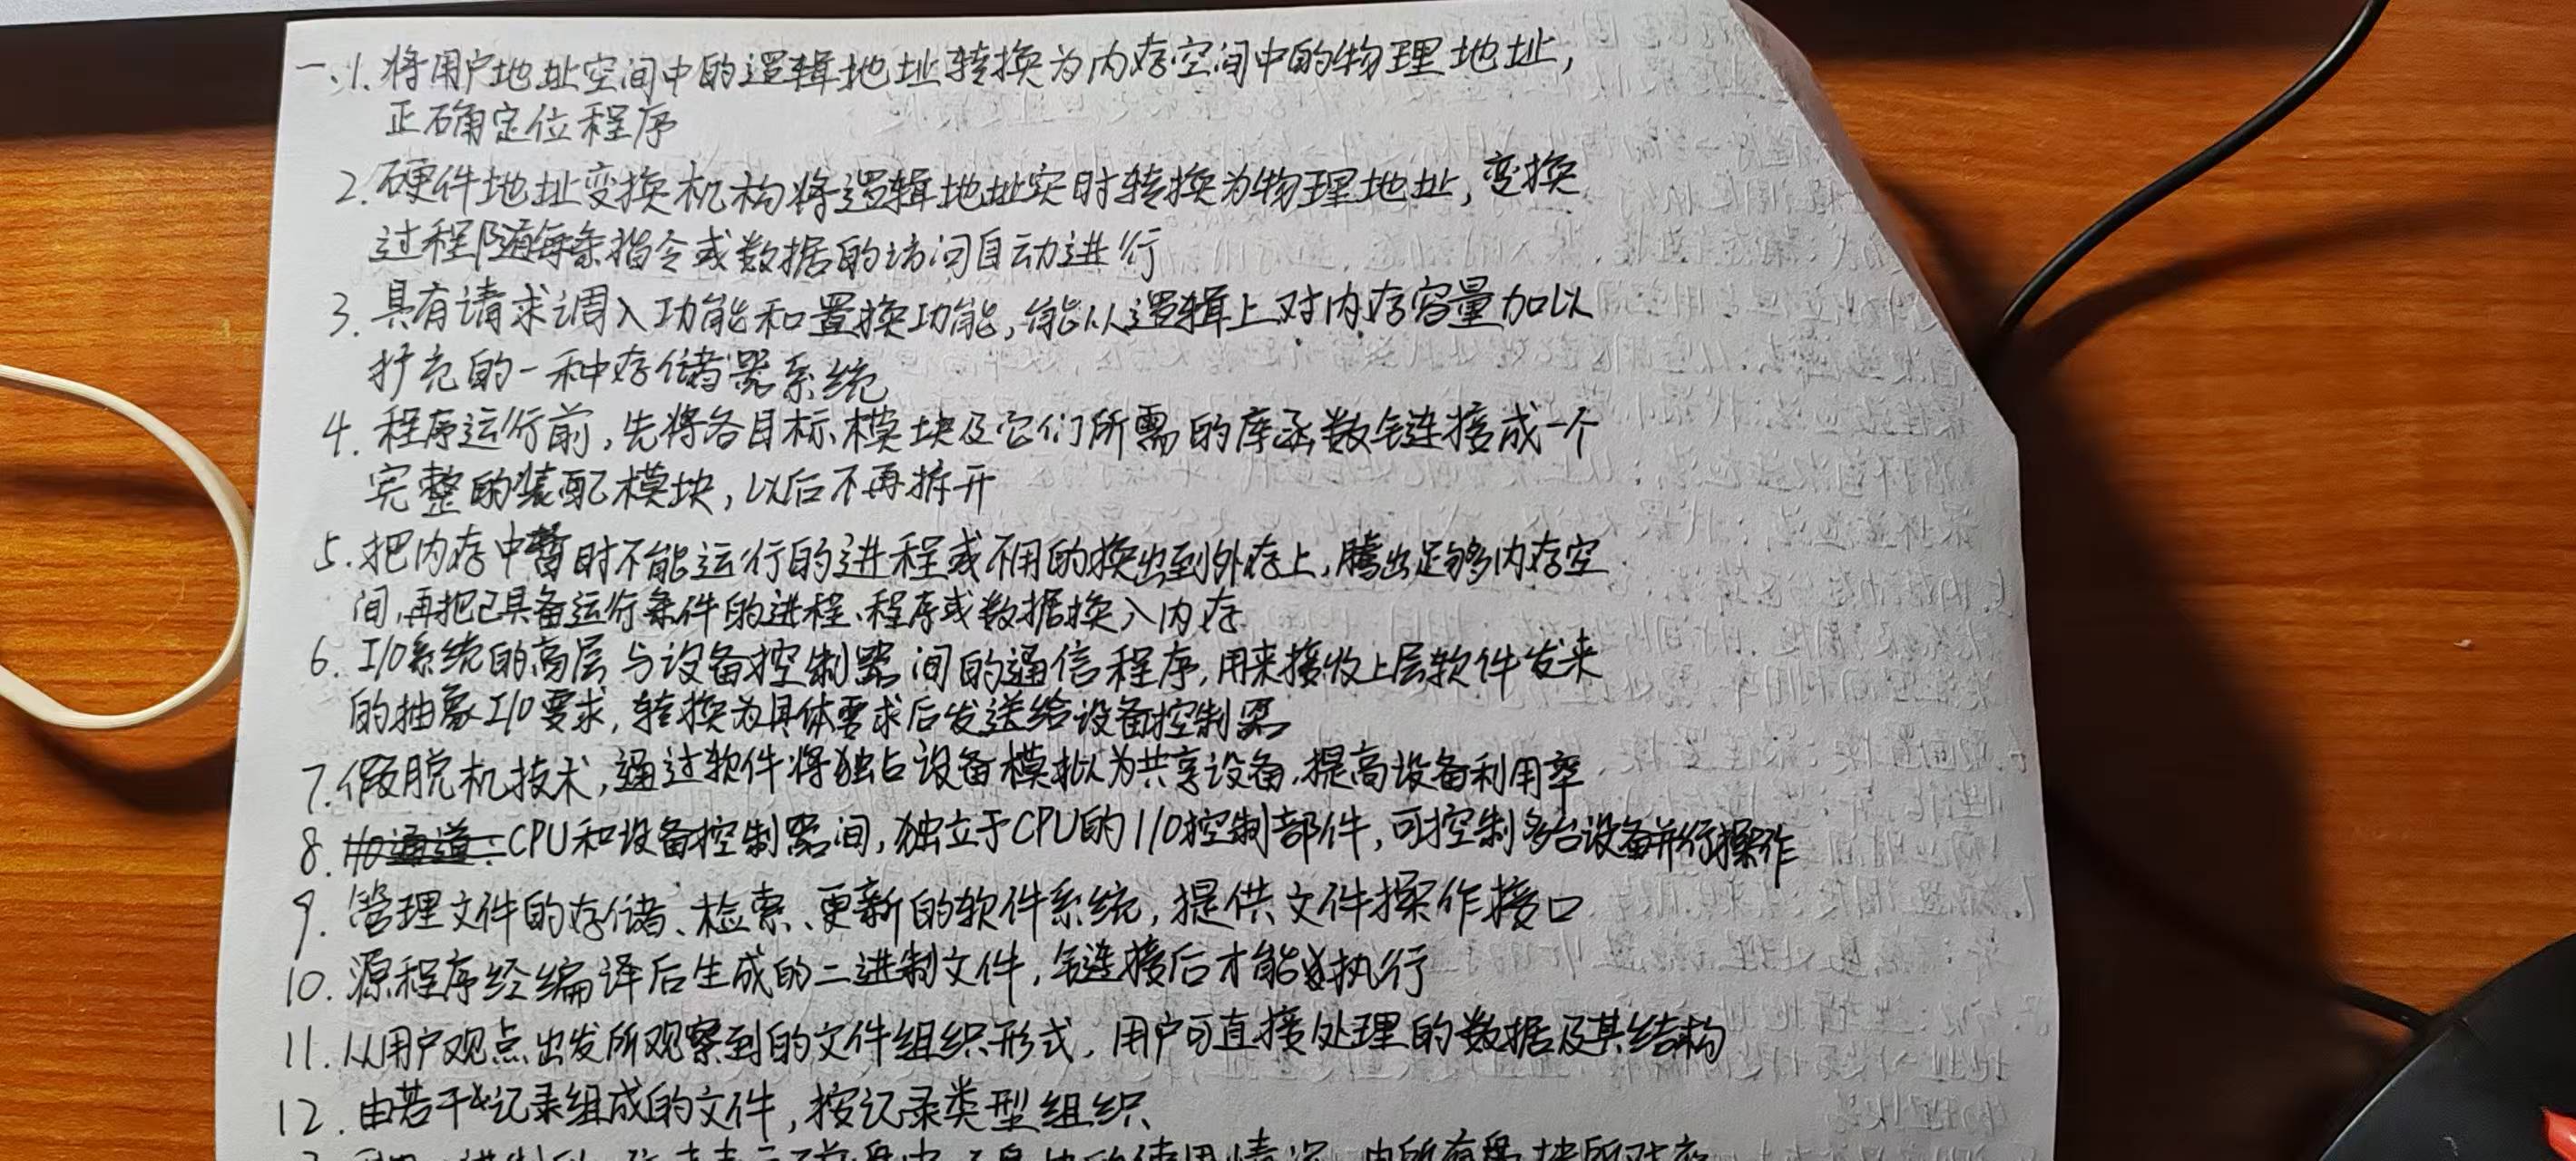 一、1. 将用户地址空间中的逻辑地址转换为内存空间中的物理地址，
正确定位程序
2. 硬件地址变换机构将逻辑地址实时转换为物理地址，变换
过程随每条指令或数据的访问自动进行
3. 具有请求调入功能和置换功能，能从逻辑上对内存容量加以
扩充的一种存储器系统
4. 程序运行前，先将各目标模块及它们所需的库函数链接成一个
完整的装配模块，以后不再拆开
5. 把内存中暂时不能运行的进程或不用的换出到外存上，腾出足够内存空
间，再把已具备运行条件的进程、程序或数据换入内存
6. I/O系统的高层与设备控制器间的通信程序，用来接收上层软件发来
的抽象I/O要求，转换为具体要求后发送给设备控制器
7. 假脱机技术，通过软件将独占设备模拟为共享设备，提高设备利用率
8. I/O通道：CPU和设备控制器间，独立于CPU的I/O控制部件，可控制多台设备并行操作
9. 管理文件的存储、检索、更新的软件系统，提供文件操作接口
10. 源程序经编译后生成的二进制文件，链接后才能执行
11. 从用户观点出发所观察到的文件组织形式，用户可直接处理的数据及其结构
12. 由若干记录组成的文件，按记录类型组织